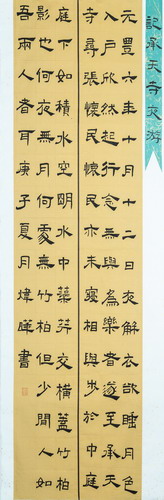 記承天寺夜游
元豐六年十月十二日夜解衣欲睡月色
入戶欣然起行念無與為樂者遂至承天
寺尋張懷民懷民亦未寢相與步於中庭
庭下如積水空明水中藻荇交橫蓋竹柏
影也何夜無月何處無竹柏但少閒人如
吾兩人者耳庚子夏月煒書